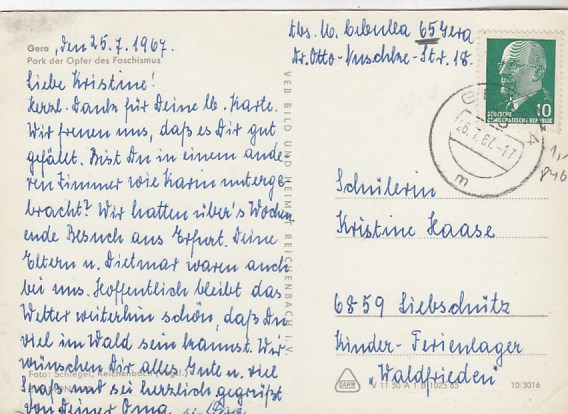 Gera, den 25.7.1967.
Park der Opfer des Faschismus
Liebe Kristine!
Herzl. Dank für Deine lb. Karte.
Wir freuen uns, daß es Dir gut
gefällt. Bist Du in einem ande-
ren Zimmer wie Karin unterge-
bracht? Wir hatten über's Wochen-
ende Besuch aus Erfurt. Deine
Eltern u. Dietmar waren auch
bei uns. Hoffentlich bleibt das
Wetter weiterhin schön, daß Du
viel im Wald sein kannst. Wir
wünschen Dir alles Gute u. viel
Spaß und sei herzlich gegrüßt
von Deiner Oma u. Opa
Foto: Schlegel, Reichenbach
VEB BILD UND HEIMAT REICHENBACH i. V.
Abs. 65 Gera
Dr. Otto-Nuschke-Str. 18.
DEUTSCHE
DEMOKRATISCHE REPUBLIK
10
26.7.67.-17
m
Schülerin
Kristine Haase
6859 Liebschütz
Kinder-Ferienlager
"Waldfrieden"
10/3016